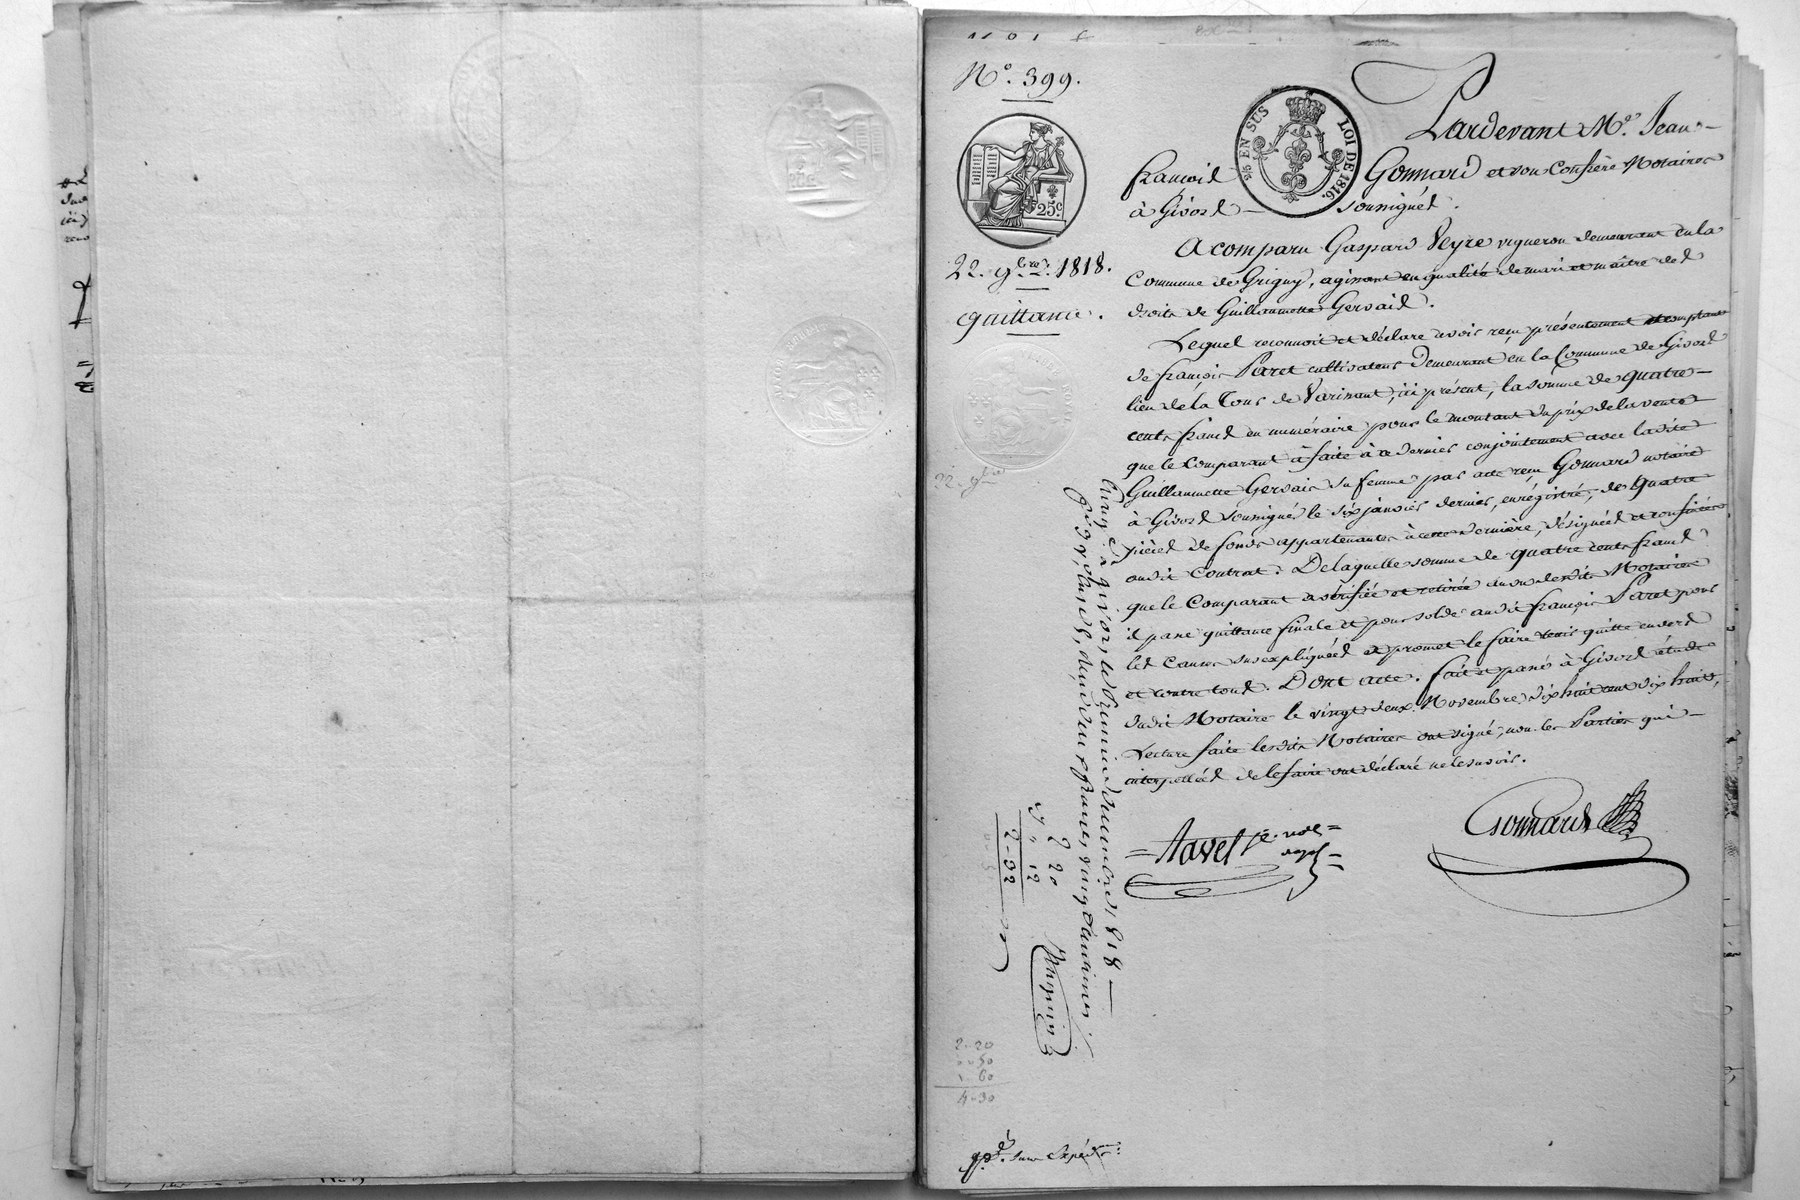 N.º 399.
25.c
2/5 EN SUS
LOI DE 1816.
22. 9.bre 1818.
quittance.
Pardevant M.e Jean-
françois Gonnard et son Confrère Notaires
à Givors soussignés.
A comparu Gaspard Veyre vigneron demeurant en la
Commune de Grigny, agissant en qualité de mari et maître des
droits de Guillaumette Gervais.
Lequel reconnoit et déclare avoir reçu présentement et comptant
de françois Paret cultivateur demeurant en la Commune de Givors
lieu de la Tour de Varissant, ici présent, la somme de quatre-
cents francs en numéraire pour le montant du prix de la vente
que le Comparant a faite à ce dernier conjointement avec ladite
Guillaumette Gervais sa femme par acte reçu Gonnard notaire
à Givors soussigné le six janvier dernier, enregistré, de quatre
pièces de fonds appartenantes à cette dernière, désignées et confinées
audit Contrat. De laquelle somme de quatre cents francs
que le Comparant a vérifiée et retirée au vu desdits Notaires
il passe quittance finale et pour solde audit françois Paret pour
les Causes susexpliquées et promet le faire tenir quitte envers
et contre tous. Dont acte. fait et passé à Givors étude
dudit Notaire le vingt deux Novembre dix huit cent dix huit,
Lecture faite lesdits Notaires ont signé, non les Parties qui-
interpellées de le faire ont déclaré ne le savoir.
Gonnard
Navel
à Givors le premier décembre 1818
deux francs vingt centimes
2 20
" 12
2-32
2-20
"-50
1-60
4-30